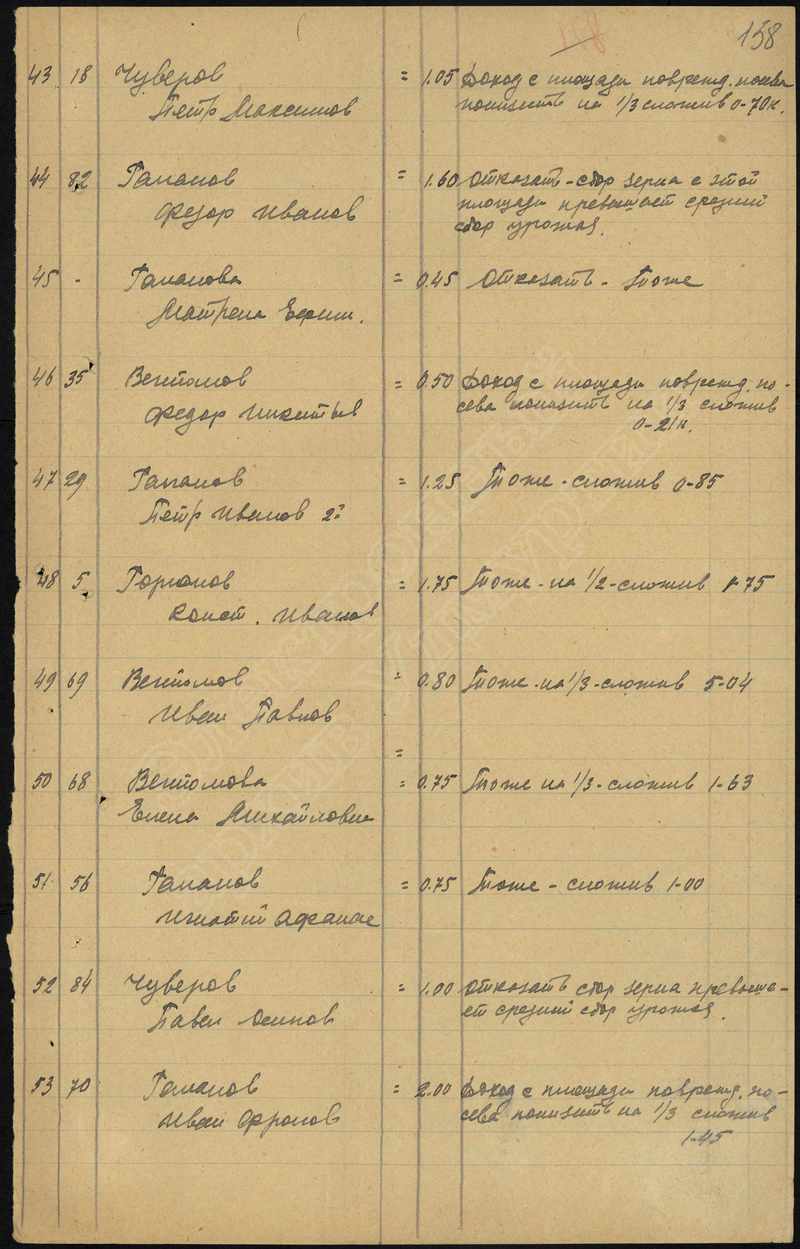 138
43 18 Чуверов = 1.05 Доход с площади поврежд. посева
Петр Максимов понизить на 1/3 сложив 0-70к.
44 82 Гапанов = 1.60 Отказать - сбор зерна с этой
Федор Иванов площади превышает средний
сбор урожая.
45 - Гапанова = 0.45 Отказать - Тоже
Матрена Ефим.
46 35 = 0.50 Доход с площади поврежд. по-
Федор Никитьев сева понизить на 1/3 сложив
0-21к.
47 29 Гапанов = 1.25 Тоже - сложив 0-85
Петр Иванов 2й
48 5 = 1.75 Тоже - на 1/2 - сложив 1-75
Конст. Иванов
49 69 = 0.80 Тоже - на 1/3 - сложив 5-04
Иван Павлов
=
50 68 = 0.75 Тоже на 1/3 - сложив 1-63
Елена Михайловна
51 56 Гапанов = 0.75 Тоже - сложив 1-00
Игнатий Афанас
52 84 Чуверов = 1.00 Отказать сбор зерна превыша-
Павел Осипов ет средний сбор урожая.
53 70 Гапанов = 2.00 Доход с площади поврежд. по-
Иван Фролов сева понизить на 1/3 сложив
1-45